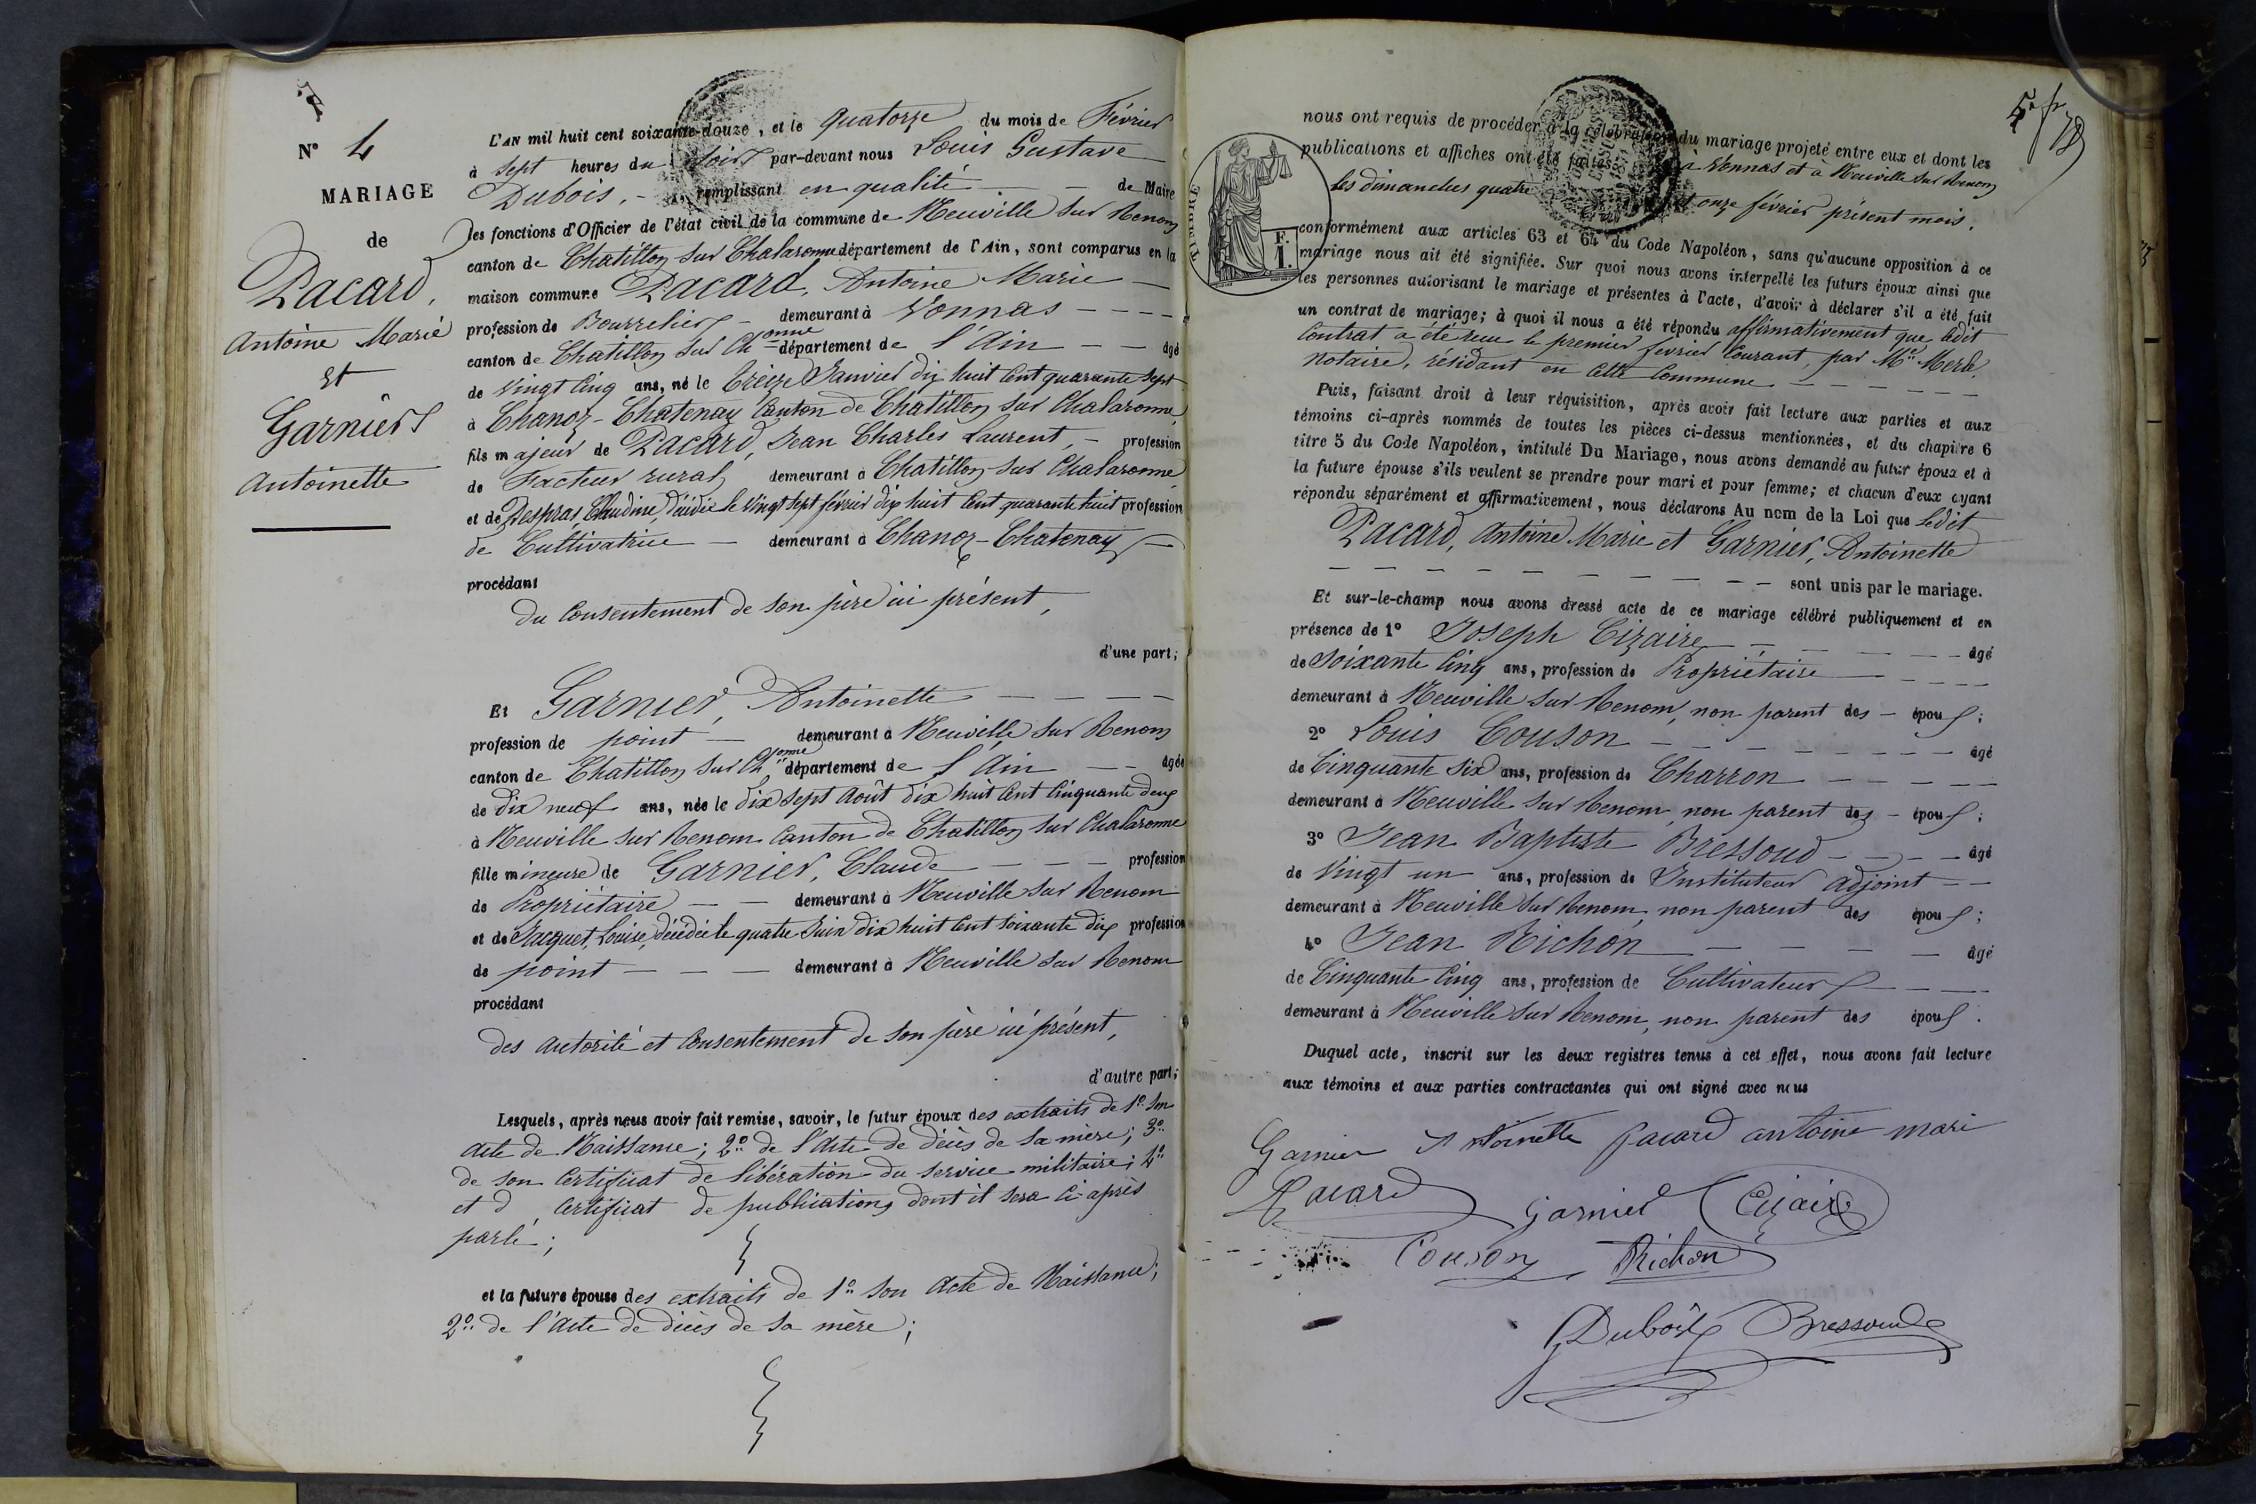 N° 4
MARIAGE
de
Pacard,
Antoine Marie
Et
Garnier
Antoinette
L'AN mil huit cent soixante-douze, et le quatorze du mois de Février
à sept heures du soir par-devant nous Louis Gustave
Dubois, - remplissant en qualité - de Maire
les fonctions d'Officier de l'état civil de la commune de Neuville sur Renom
canton de Chatillon sur Chalaronne département de l'Ain, sont comparus en la
maison commune Pacard, Antoine Marie —
profession de Bourrelier - demeurant à Vonnas - - - -
canton de Chatillon sur Ch onne département de l'Ain - - âgé
de vingt cinq ans, né le treize Janvier dix huit cent quarante sept
à Chanoz-Chatenay Canton de Châtillon sur Chalaronne,
fils majeur de Pacard, Jean Charles Laurent, - profession
de Facteur rural demeurant à Chatillon sur Chalaronne,
et de Despras, Claudine, décédée le vingt sept février dix huit cent quarante huit profession
de Cultivatrice — demeurant à Chanoz-Chatenay —
procédant
du consentement de son père ici présent,
d'une part;
Et Garnier, Antoinette - - - -
profession de point - demeurant à Neuville sur Renom
canton de Chatillon sur Ch onne département de l'Ain - - âgée
de dix neuf ans, née le dix sept Août dix huit cent cinquante deux
à Neuville sur Renom Canton de Chatillon sur Chalaronne
fille mineure de Garnier, Claude - - - profession
de Propriétaire - - demeurant à Neuville sur Renom
et de Jacquet, Louise, décédée le quatre Juin dix huit cent soixante dix profession
de point - - - demeurant à Neuville sur Renom
procédant
des autorité et consentement de son père ici présent,
d'autre part;
Lesquels, après nous avoir fait remise, savoir, le futur époux des extraits de 1° son
acte de Naissance; 2° de l'Acte de décès de sa mère; 3°
de son Certificat de libération du service militaire; 4°
et d Certificat de publications dont il sera ci-après
parlé;
et la future épouse des extraits de 1° son Acte de Naissance;
2° de l'Acte de décès de sa mère;
nous ont requis de procéder à la célébration du mariage projeté entre eux et dont les
publications et affiches ont été faites à Vonnas et à Neuville sur Renom
les dimanches quatre et onze février présent mois.
TIMBRE
F.
1.
conformément aux articles 63 et 64 du Code Napoléon, sans qu'aucune opposition à ce
mariage nous ait été signifiée. Sur quoi nous avons interpellé les futurs époux ainsi que
les personnes autorisant le mariage et présentes à l'acte, d'avoir à déclarer s'il a été fait
un contrat de mariage; à quoi il nous a été répondu affirmativement que ledit
Contrat a été reçu le premier février courant, par Me Merle,
Notaire, résidant en cette Commune - - - - -
Puis, faisant droit à leur réquisition, après avoir fait lecture aux parties et aux
témoins ci-après nommés de toutes les pièces ci-dessus mentionnées, et du chapitre 6
titre 5 du Code Napoléon, intitulé Du Mariage, nous avons demandé au futur époux et à
la future épouse s'ils veulent se prendre pour mari et pour femme; et chacun d'eux ayant
répondu séparément et affirmativement, nous déclarons Au nom de la Loi que ledit
Pacard, Antoine Marie et Garnier, Antoinette
- - - - - - - - - - sont unis par le mariage.
Et sur-le-champ nous avons dressé acte de ce mariage célébré publiquement et en
présence de 1° Joseph Cizaire - - - - - âgé
de soixante cinq ans, profession de Propriétaire - - - -
demeurant à Neuville sur Renom, non parent des - époux;
2° Louis Couson - - - - - - - - âgé
de Cinquante six ans, profession de Charron - - - -
demeurant à Neuville sur Renom, non parent des - époux;
3° Jean Baptiste Bressoud - - - - âgé
de Vingt un ans, profession de Instituteur adjoint - -
demeurant à Neuville sur Renom, non parent des époux;
4° Jean Richon - - - - âgé
de Cinquante cinq ans, profession de Cultivateur - - -
demeurant à Neuville sur Renom, non parent des époux.
Duquel acte, inscrit sur les deux registres tenus à cet effet, nous avons fait lecture
aux témoins et aux parties contractantes qui ont signé avec nous
Garnier Antoinette pacard antoine mari
Pacard Garnier Cizaire
Couson Richon
Dubois Bressoud